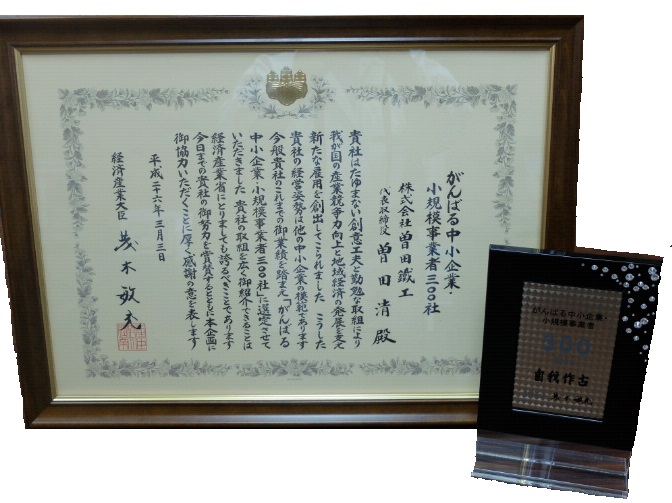 がんばる中小企業・
小規模事業者三〇〇社
株式会社曽田鐵工
代表取締役 曽田清殿
貴社はたゆまない創意工夫と勤勉な取組により
我が国の産業競争力向上と地域経済の発展を支え
新たな雇用を創出してこられました こうした
貴社の経営姿勢は他の中小企業の模範であります
今般貴社のこれまでの御業績を踏まえ「がんばる
中小企業・小規模事業者三〇〇社」に選定させて
いただきました 貴社の取組を広く御紹介できることは
経済産業省にとりましても誇るべきことであります
今日までの貴社の御努力を賞賛するとともに本企画に
御協力いただくことに厚く感謝の意を表します
平成二十六年三月三日
経済産業大臣 茂木敏充
がんばる中小企業・
小規模事業者
300
自我作古